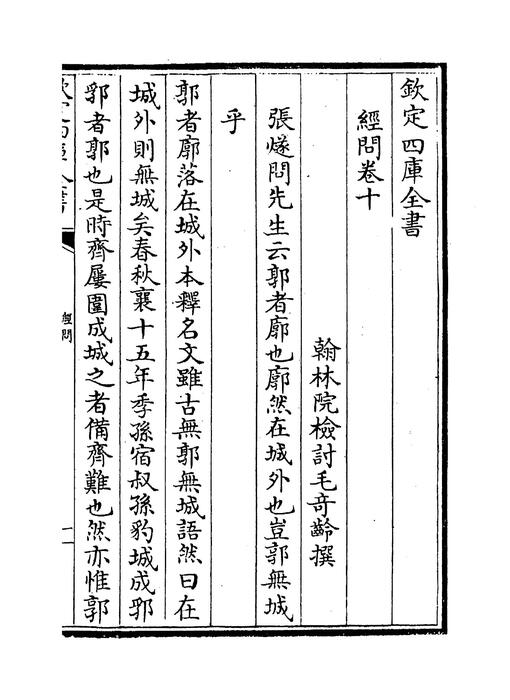 欽定四庫全書
經問卷十
翰林院檢討毛奇齡撰
張燧問先生云郭者廓也廓然在城外也豈郭無城
乎
郭者廓落在城外本釋名文雖古無郭無城語然曰在
城外則無城矣春秋襄十五年季孫宿叔孫豹城成郛
郛者郭也是時齊屢圍成城之者備齊難也然亦惟郭
欽定四庫全書
經問
一